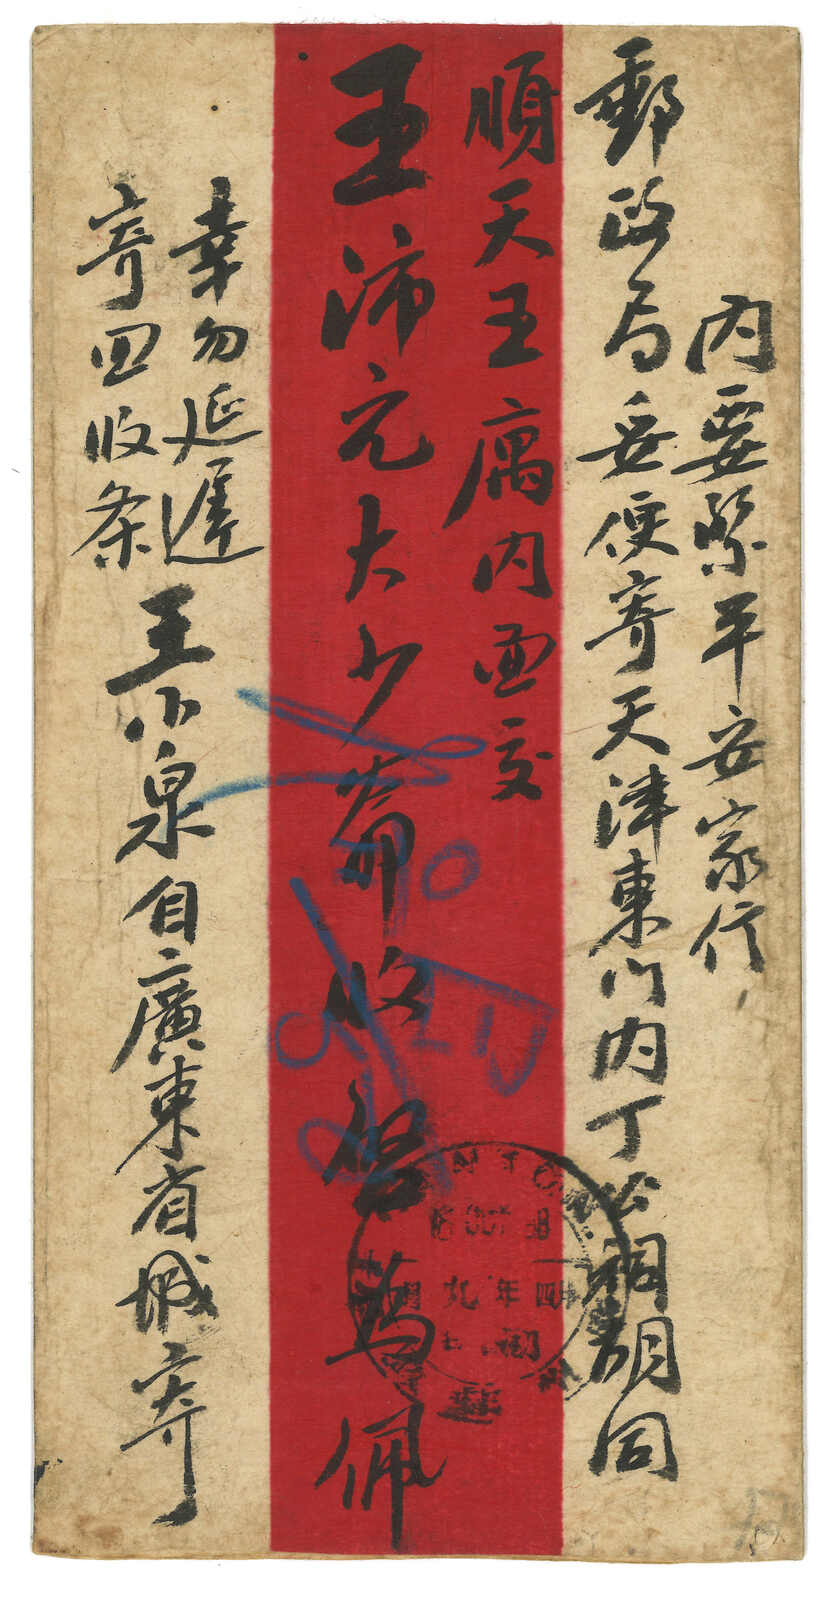 内要緊平安家信
郵政局妥便寄天津東门内丁公祠胡同
順天王寓内面交
王沛元大少爺收啓為佩
幸勿延遲
寄回收条
王小泉自廣東省城寄
CANTON
OCT
年四
初